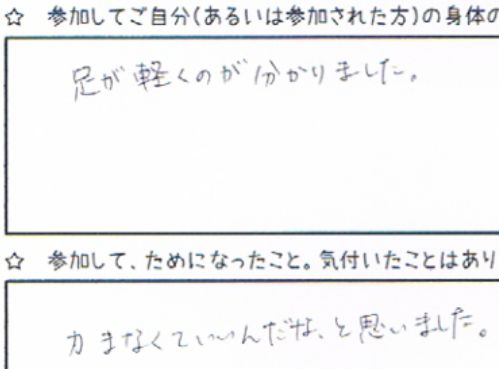 ☆ 参加してご自分(あるいは参加された方)の身体の
足が軽くのが分かりました。
☆ 参加して、ためになったこと。気付いたことはあり
力まなくていいんだな、と思いました。